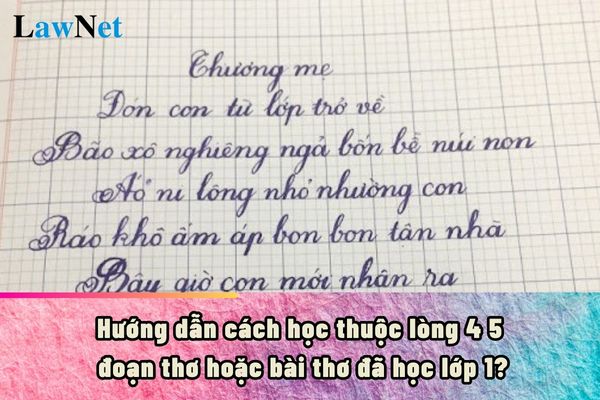 LawNet
Thương mẹ
Đón con từ lớp trở về
Bão xô nghiêng ngả bốn bề núi non
Áo ni lông nhỏ nhường con
Ráo khô ấm áp bon bon tận nhà
Bây giờ con mới nhận ra
Hướng dẫn cách học thuộc lòng 4 5
đoạn thơ hoặc bài thơ đã học lớp 1?